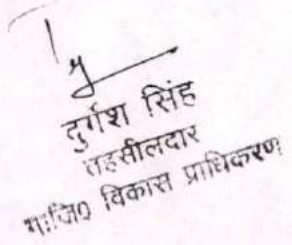 दुर्गेश सिंह
तहसीलदार
गा०जि० विकास प्राधिकरण